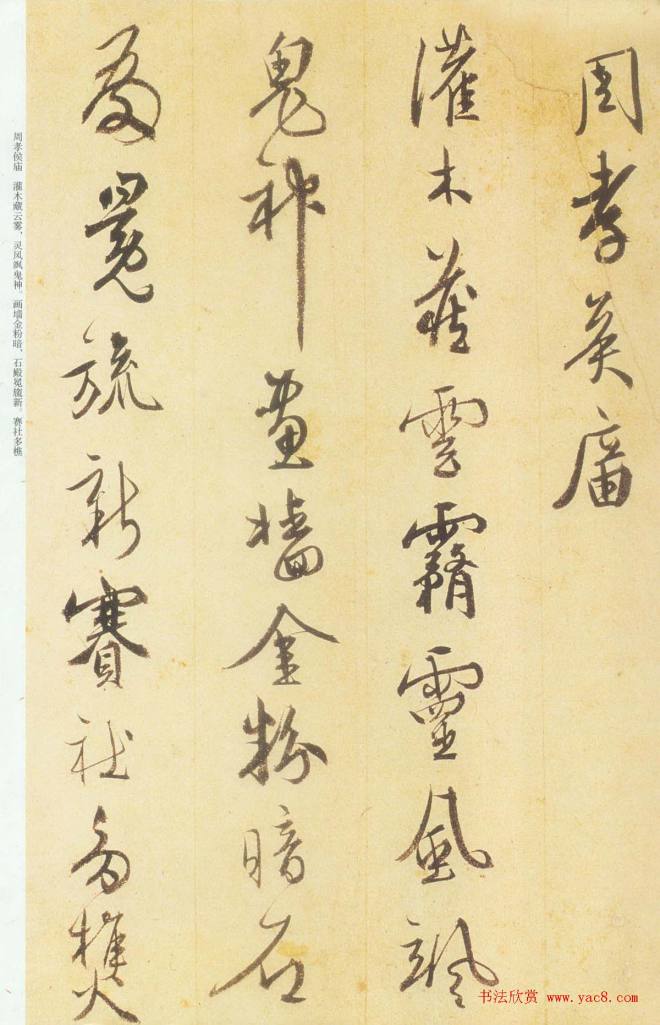 周孝矦庙
灌木藏雲霧靈風飒
鬼神畫墻金粉暗石
殿冕旒新賽社多樵
周孝侯庙　灌木藏云雾，灵风飒鬼神。画墙金粉暗，石殿冕旒新。赛社多樵
书法欣赏 www.yac8.com